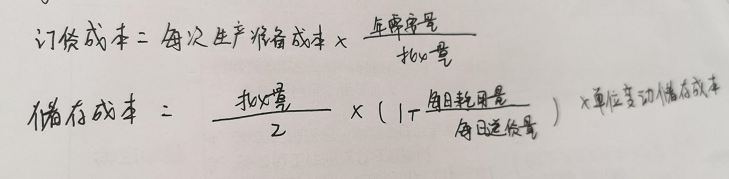 订货成本 = 每次生产准备成本 × 年需求量 / 批量
储存成本 = 批量 / 2 × (1- 每日耗用量 / 每日送货量) × 单位变动储存成本